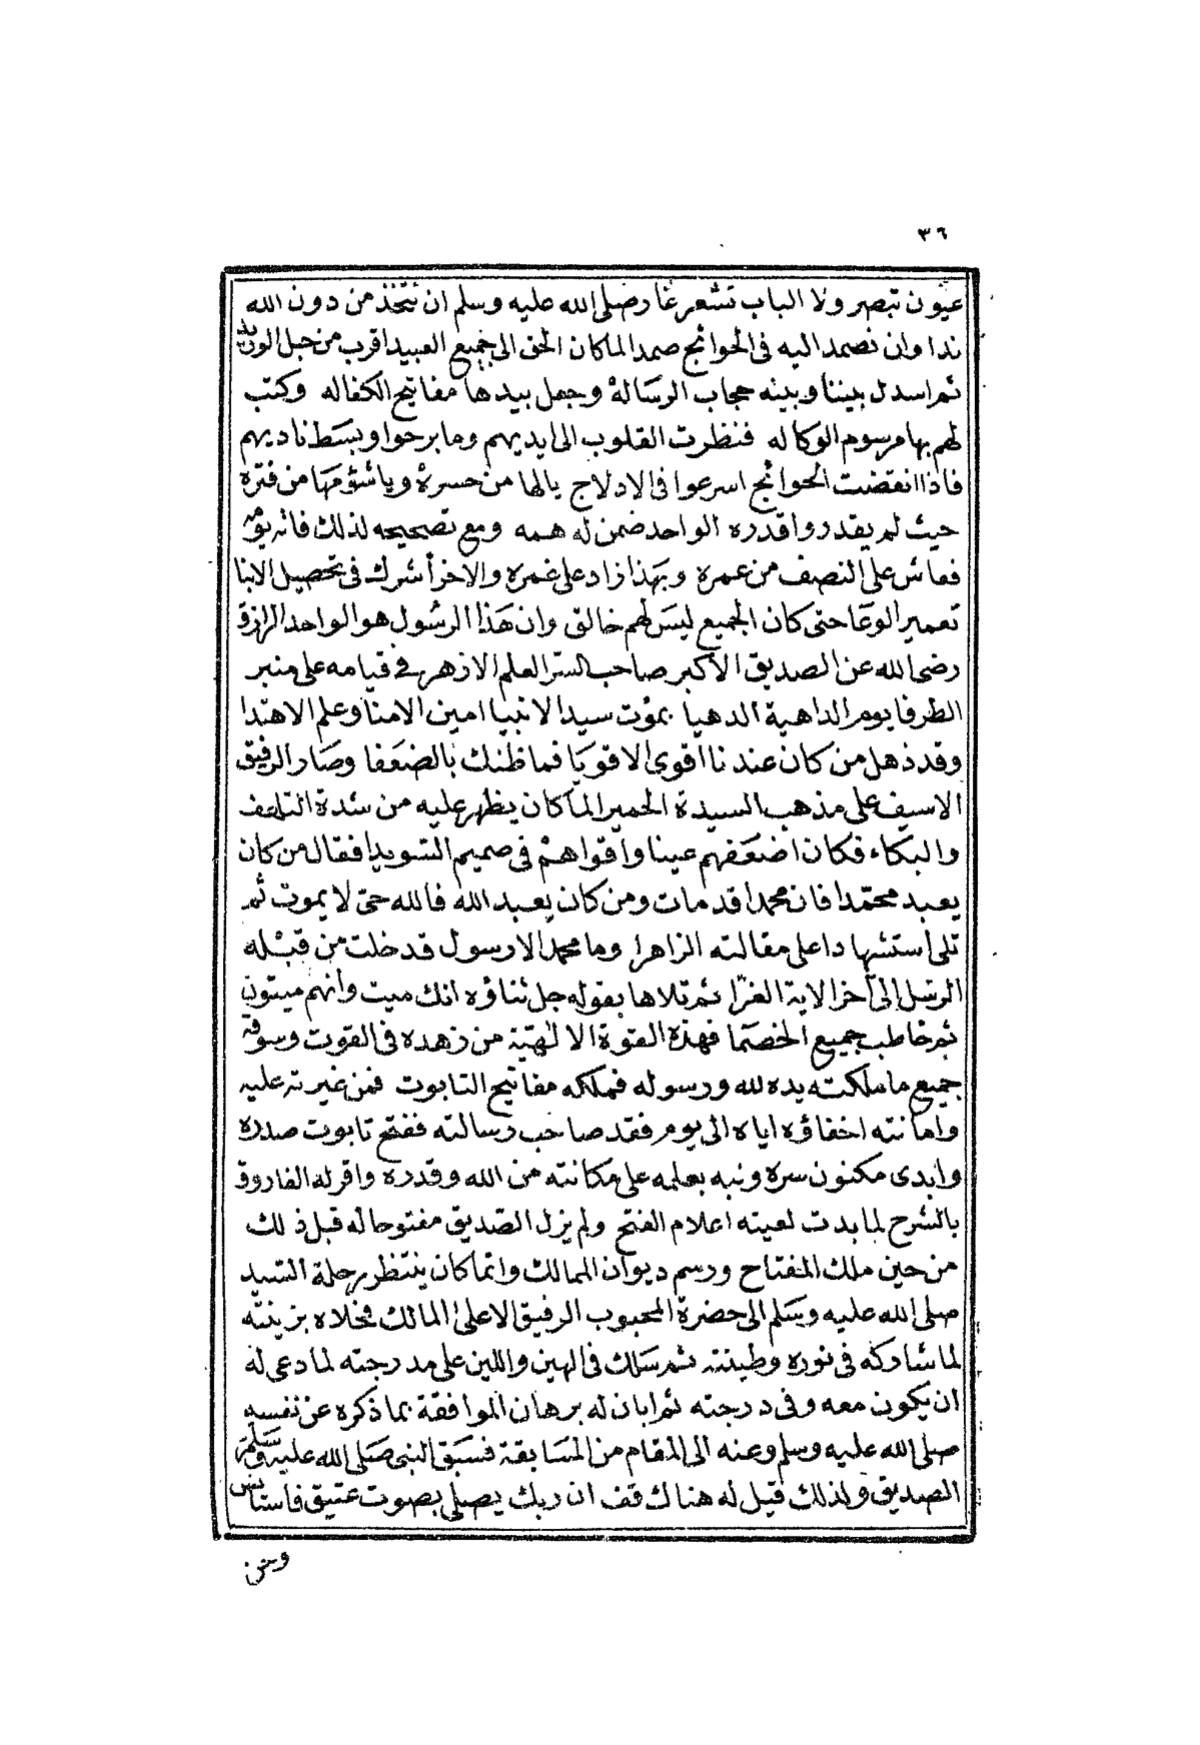 ٣٦
عيون تبصر ولا الباب تشعر غار صلى الله عليه وسلم ان نتخذ من دون الله
ندا وان نصمد اليه فى الحوائج صمدا لما كان الحق الى جميع العبيد اقرب من حبل الوريد
ثم اسدل بيننا وبينه حجاب الرسالة وجعل بيدها مفاتيح الكفاله وكتب
لهم بها مرسوم الوكاله فنظرت القلوب الى ايديهم وما برحوا وبسط ناديهم
فاذا انقضت الحوائج اسرعوا فى الادلاج يالها من حسرة وياشؤمها من فترة
حيث لم يقدروا قدره الواحد ضمن له همه ومع تصحيحه لذلك فاته يومه
فعاش على النصف من عمره وبهذا زاد على غمره والاخر أشرك فى تحصيل الابنا
تعمير الوعا حتى كان الجميع ليس لهم خالق وان هذا الرسول هو الواحد الرازق
رضى الله عن الصديق الاكبر صاحب السر العلم الازهر فى قيامه على منبر
الطرفا يوم الداهية الدهيا بموت سيد الانبيا امين الامنا وعلم الاهتدا
وقد ذهل من كان عندنا اقوى الاقويا فما ظنك بالضعفا وصار الرفيق
الاسيف على مذهب السيدة الحميرا لما كان يظهر عليه من شدة التلهف
والبكاء فكان اضعفهم عينا واقواهم فى صميم السويدا فقال من كان
يعبد محمدا فان محمدا قد مات ومن كان يعبد الله فالله حى لا يموت ثم
تلى استشهادا على مقالته الزاهرا وما محمد الا رسول قد خلت من قبله
الرسل الى آخر الاية الغرا ثم تلاها بقوله جل ثناؤه انك ميت وانهم ميتون
ثم خاطب جميع الخصما فهذه القوة الالهية من زهده فى القوت وسوقه
جميع ما ملكته يده لله ورسوله فملكه مفاتيح التابوت فمن غيرته عليه
وامانته اخفاؤه اياه الى يوم فقد صاحب رسالته ففتح تابوت صدره
وابدى مكنون سره ونبه بعلمه على مكانته من الله وقدره واقر له الفاروق
بالشرح لما بدت لعينه اعلام الفتح ولم يزل الصديق مفتوحا له قبل ذلك
من حين ملك المفتاح ورسم ديوان الممالك وانما كان ينتظر رحلة السيد
صلى الله عليه وسلم الى حضرة المحبوب الرفيق الاعلى المالك فخلاه بزينته
لما شاركه فى نوره وطينته ثم سلك فى الهين واللين على مدرجته لما دعى له
ان يكون معه وفى درجته ثم ابان له برهان الموافقة بما ذكره عن نفسه
صلى الله عليه وسلم وعنه الى المقام من المسابقة فسبق النبى صلى الله عليه وسلم
الصديق ولذلك قيل له هناك قف ان ربك يصلى بصوت عتيق فاستانس
ومن